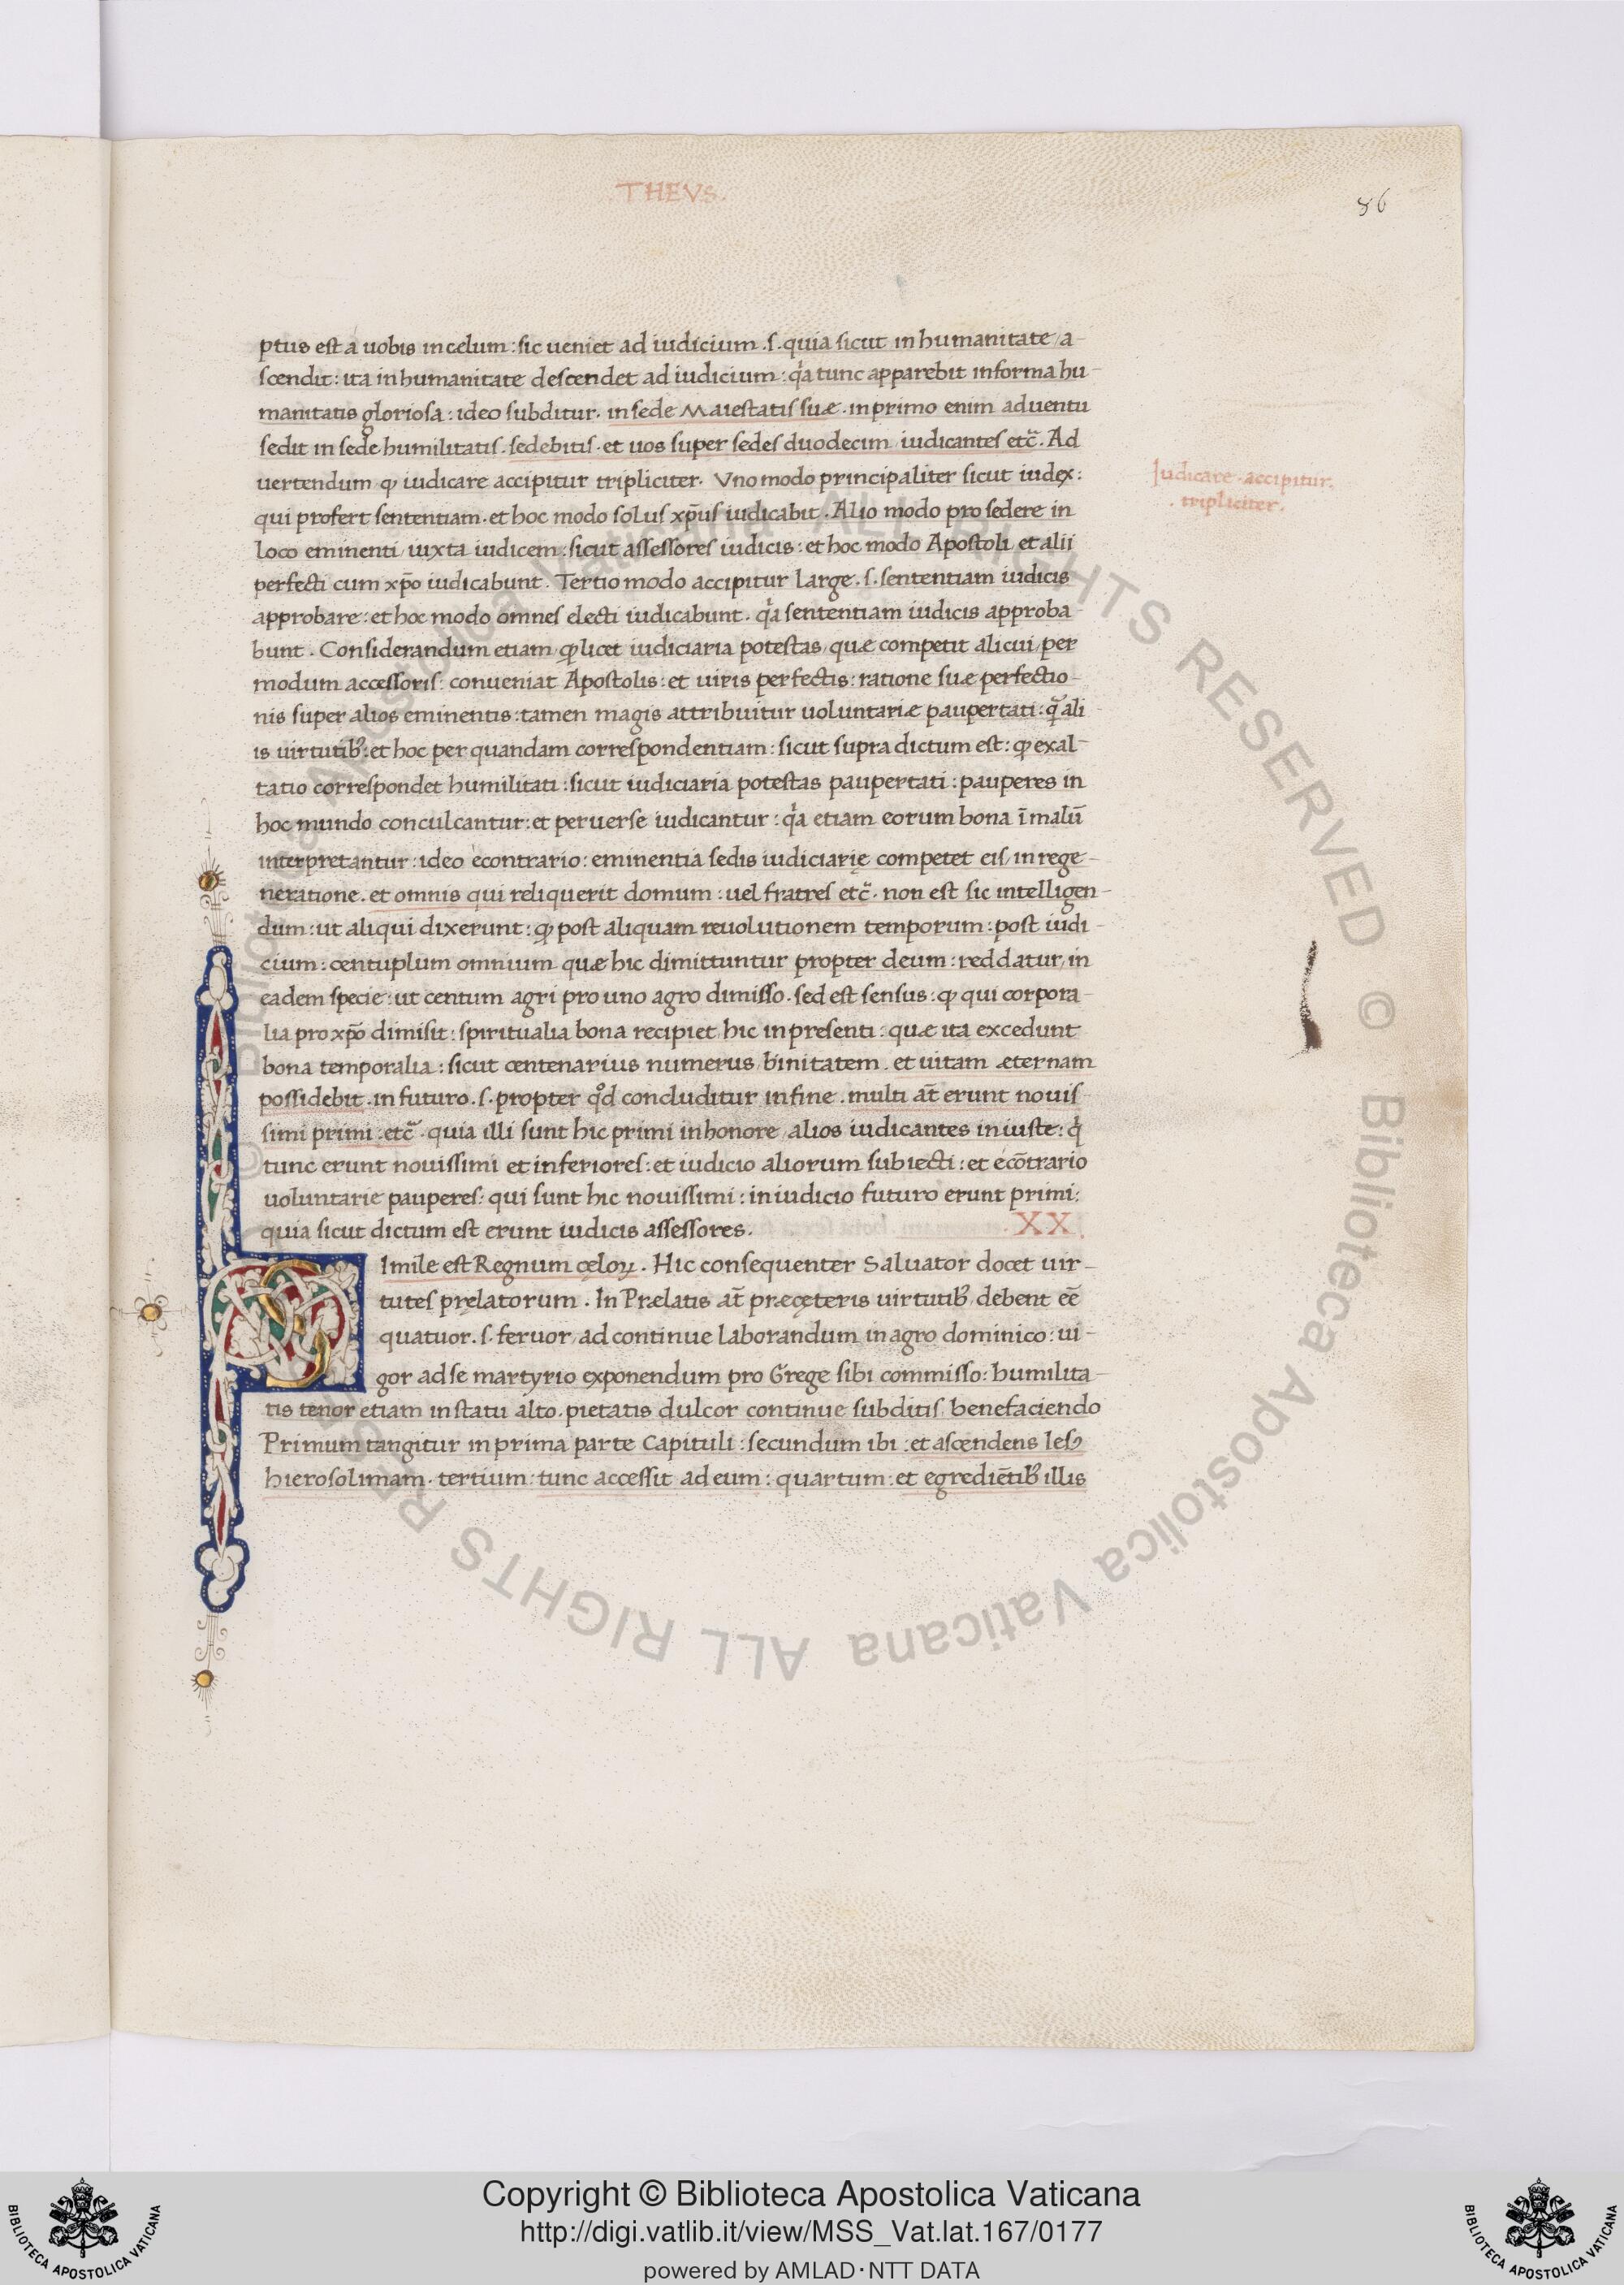 THEVS.
86
ptus est a uobis in celum : sic ueniet ad iudicium .s. quia sicut in humanitate / a-
scendit : ita in humanitate descendet ad iudicium : qͣa tunc apparebit in forma hu-
manitatis gloriosa : ideo subditur . in sede Maiestatis suæ . in primo enim aduentu
sedit in sede humilitatis . sedebitis . et uos super sedes duodecim / iudicantes etc̃ . Ad
uertendum / ꝙ iudicare accipitur tripliciter . Vno modo principaliter sicut iudex :
qui profert sententiam . et hoc modo solus xp̄us iudicabit . Alio modo pro sedere in
loco eminenti / iuxta iudicem : sicut assessores iudicis : et hoc modo Apostoli et alii
perfecti cum xp̄o iudicabunt . Tertio modo accipitur large .s. sententiam iudicis
approbare : et hoc modo omnes electi iudicabunt . qͣa sententiam iudicis approba-
bunt . Considerandum etiam / ꝙ licet iudiciaria potestas / quæ competit alicui / per
modum accessoris : conueniat Apostolis : et uiris perfectis : ratione suæ perfectio-
nis super alios eminentis : tamen magis attribuitur uoluntariæ paupertati : qͣ ali-
is uirtutibꝰ : et hoc per quandam correspondentiam : sicut supra dictum est : ꝙ exal-
tatio correspondet humilitati : sicut iudiciaria potestas paupertati : pauperes in
hoc mundo conculcantur : et peruerse iudicantur : qͣa etiam eorum bona ī malū
interpretantur : ideo econtrario : eminentia sedis iudiciarię competet eis / in rege-
neratione . et omnis qui reliquerit domum : uel fratres etc̃ . non est sic intelligen-
dum : ut aliqui dixerunt : ꝙ post aliquam reuolutionem temporum : post iudi-
cium : centuplum omnium quæ hic dimittuntur propter deum : reddatur / in
eadem specie : ut centum agri pro uno agro dimisso . sed est sensus : ꝙ qui corpora-
lia pro xp̄o dimisit : spiritualia bona recipiet hic in presenti : quæ ita excedunt
bona temporalia : sicut centenarius numerus / binitatem . et uitam æternam
possidebit . in futuro .s. propter qͦd concluditur in fine . multi at̄ erunt nouis-
simi primi . etc̃ . quia illi sunt hic primi in honore / alios iudicantes iniuste : qͥ
tunc erunt nouissimi et inferiores : et iudicio aliorum subiecti : et ecōtrario
uoluntarie pauperes : qui sunt hic nouissimi : in iudicio futuro erunt primi :
quia sicut dictum est erunt iudicis assessores . XX .
Simile est Regnum cęloꝝ . Hic consequenter Saluator docet uir-
tutes prelatorum . In Prælatis at̄ præ cęteris uirtutibꝰ debent eē
quatuor .s. feruor / ad continue laborandum in agro dominico : ui-
gor ad se martyrio exponendum pro Grege sibi commisso : humilita-
tis tenor etiam in statu alto . pietatis dulcor continue subditis benefaciendo
Primum tangitur in prima parte Capituli : secundum ibi : et ascendens Iesꝰ
hierosolimam . tertium : tunc accessit ad eum : quartum : et egrediētibꝰ illis
Iudicare . accipitur .
. tripliciter .
© Biblioteca Apostolica Vaticana ALL RIGHTS RESERVED © Biblioteca Apostolica Vaticana ALL RIGHTS RES
Copyright © Biblioteca Apostolica Vaticana
http://digi.vatlib.it/view/MSS_Vat.lat.167/0177
powered by AMLAD·NTT DATA
BIBLIOTECA APOSTOLICA VATICANA
BIBLIOTECA APOSTOLICA VATICANA